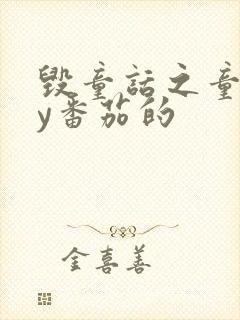 毁童话之童
y番茄的
金喜善